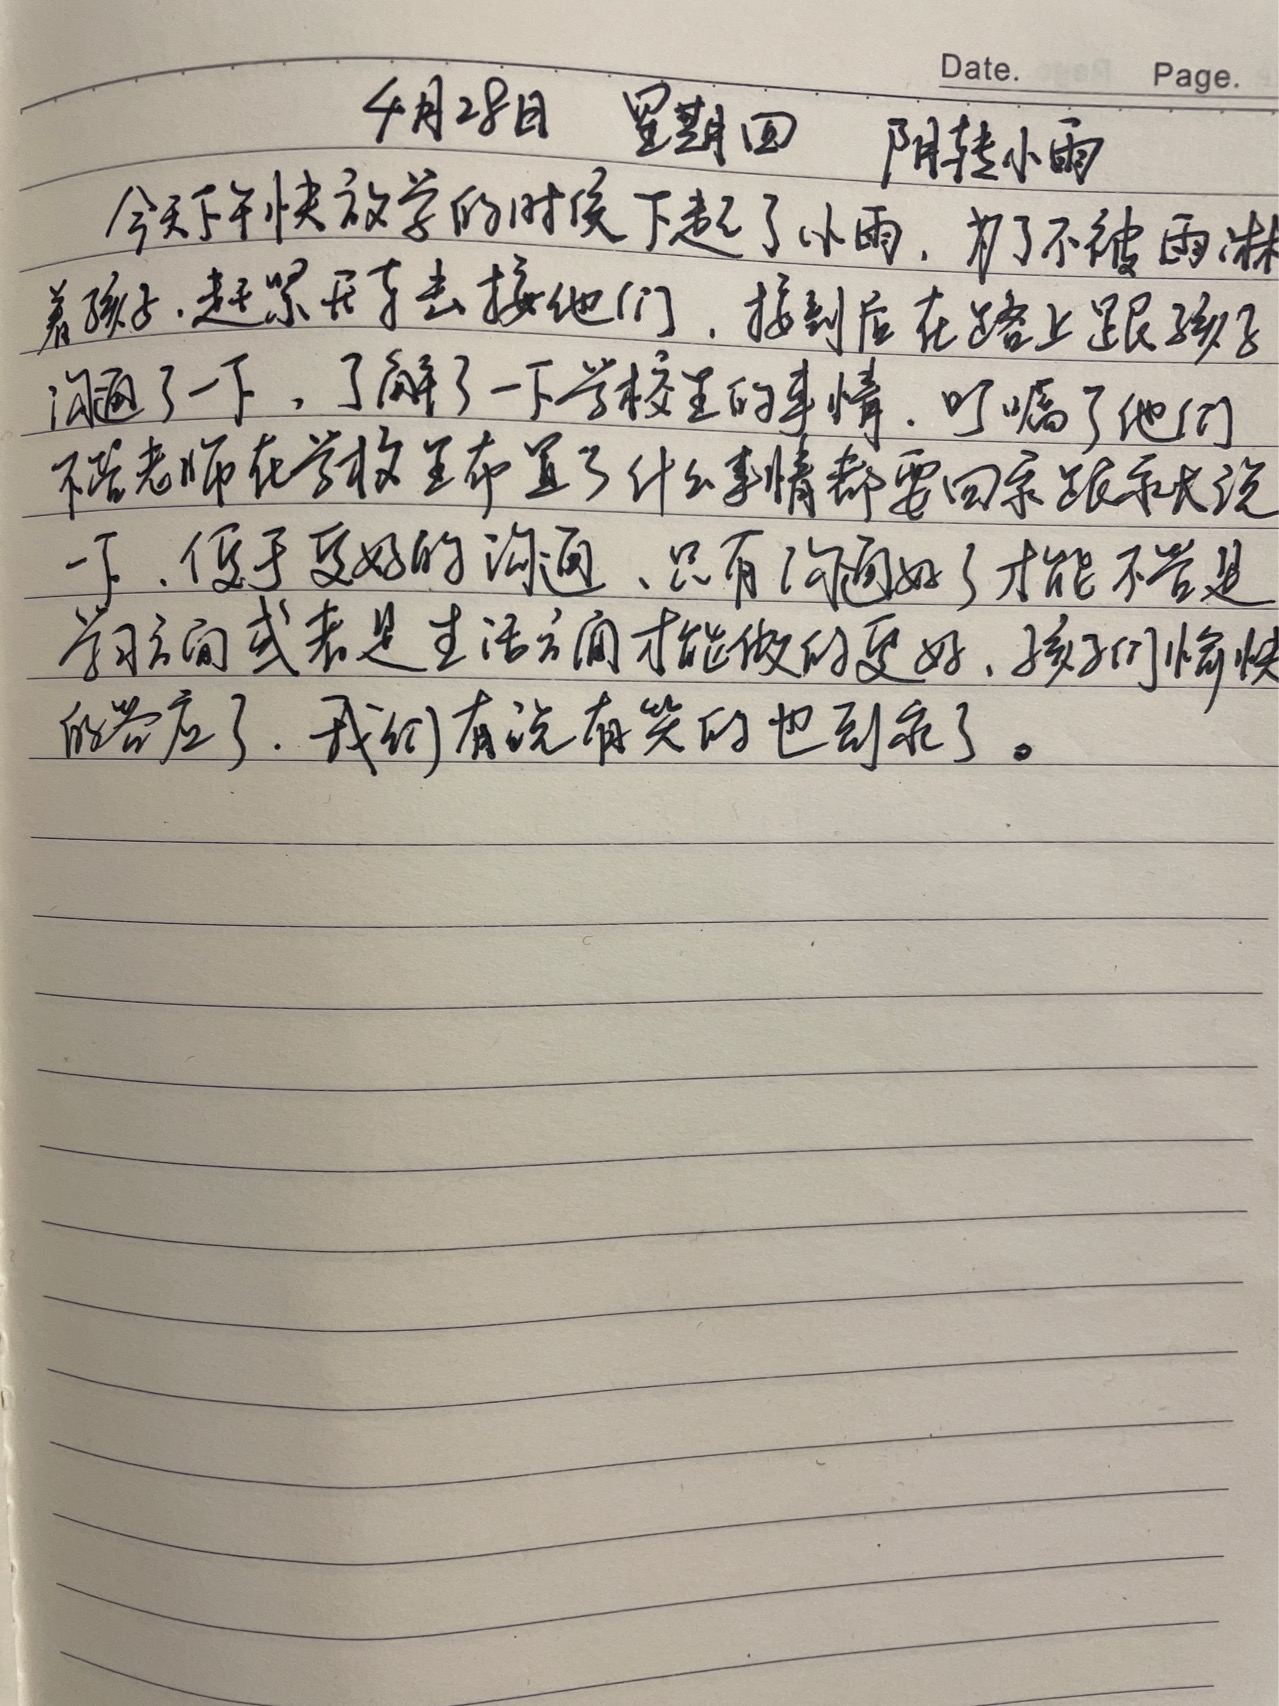 Date. Page.
4月28日 星期四 阴转小雨
今天下午快放学的时侯下起了小雨，为了不被雨淋
着孩子，赶紧开车去接他们，接到后在路上跟孩子
沟通了一下，了解了一下学校里的事情，叮嘱了他们
不管老师在学校里布置了什么事情都要回家跟家长说
一下，便于更好的沟通，只有沟通好了才能不管是
学习方面或者是生活方面才能做的更好，孩子们愉快
的答应了，我们有说有笑的也到家了。